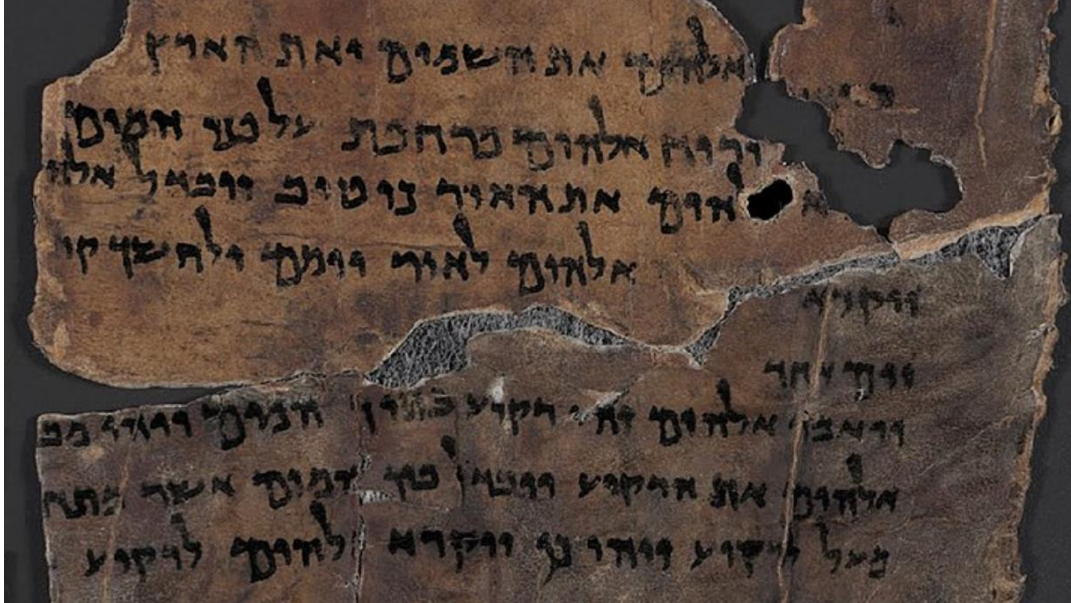 אלהים את השמים ואת הארץ
ורוח אלהים מרחפת על פני המים
אלהים את האור כי טוב ויבדל אלהי
ויקרא אלהים לאור יומם ולחשך קר
יום אחד
ויאמר אלהים יהי רקיע בתוך המים ויהי מב
אלהים את הרקיע ויבדל בין המים אשר מתח
מעל לרקיע ויהי כן ויקרא אלהים לרקיע